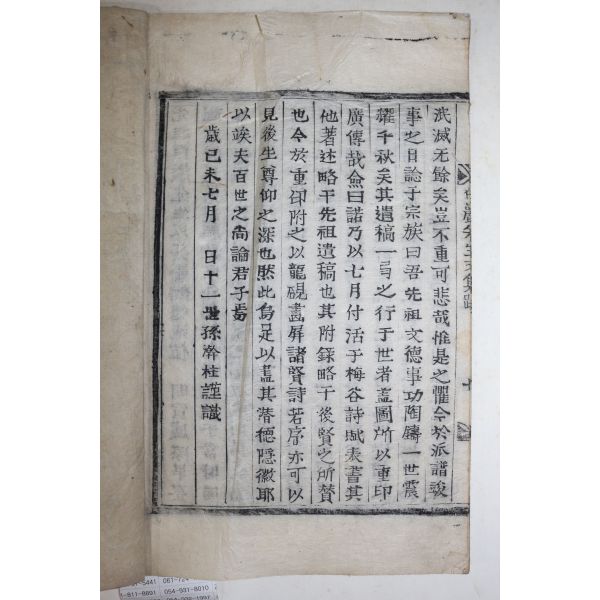 泯滅无餘矣豈不重可悲哉惟是之懼今於派譜竣
事之日諗于宗族曰吾先祖文德事功陶鑄一世震
耀千秋矣其遺稿一弓之行于世者盍圖所以重印
廣傳哉僉曰諾乃以七月付活于梅谷詩賦表書其
他著述略干先祖遺稿也其附錄略干後賢之所贊
也今於重印附之以龍硯畵屛諸賢詩若序亦可以
見後生尊仰之深也然此烏足以盡其潛德隱徽耶
以竢夫百世之尙論君子焉
歲己未七月 日十一世孫榦柱謹識
-5441 061-724
-811-8891 054-931-8010